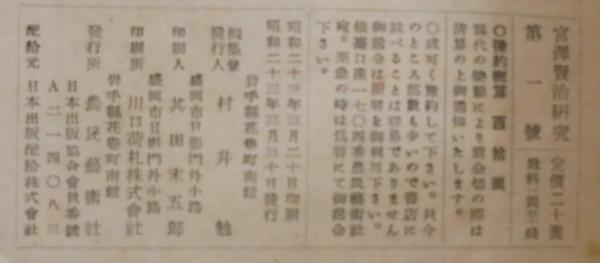 宮澤賢治研究
第一號
定價二十圓
送料二圓五十錢
〇豫約概算 百拾圓
誌代の變動により前金切の際は
清算の上御通知いたします。
〇成可く豫約して下さい。只今
のところ部數も少いので書店に
並べることは容易でありません
御送金は振替を御利用下さい。
仙臺口座一七〇四番農民藝術社
宛。小爲替の時は爲替にて御送金
下さい。
昭和二十三年三月二十日印刷
昭和二十三年三月三十日發行
岩手縣花卷町南舘
編集兼發行人 村井勉
盛岡市日影門外小路
印刷人 其田末五郎
盛岡市日影門外小路
印刷所 川口荷札株式會社
岩手縣花卷町南舘
發行所 農民藝術社
日本出版協會會員番號
A二一四〇八三
配給元 日本出版配給株式會社